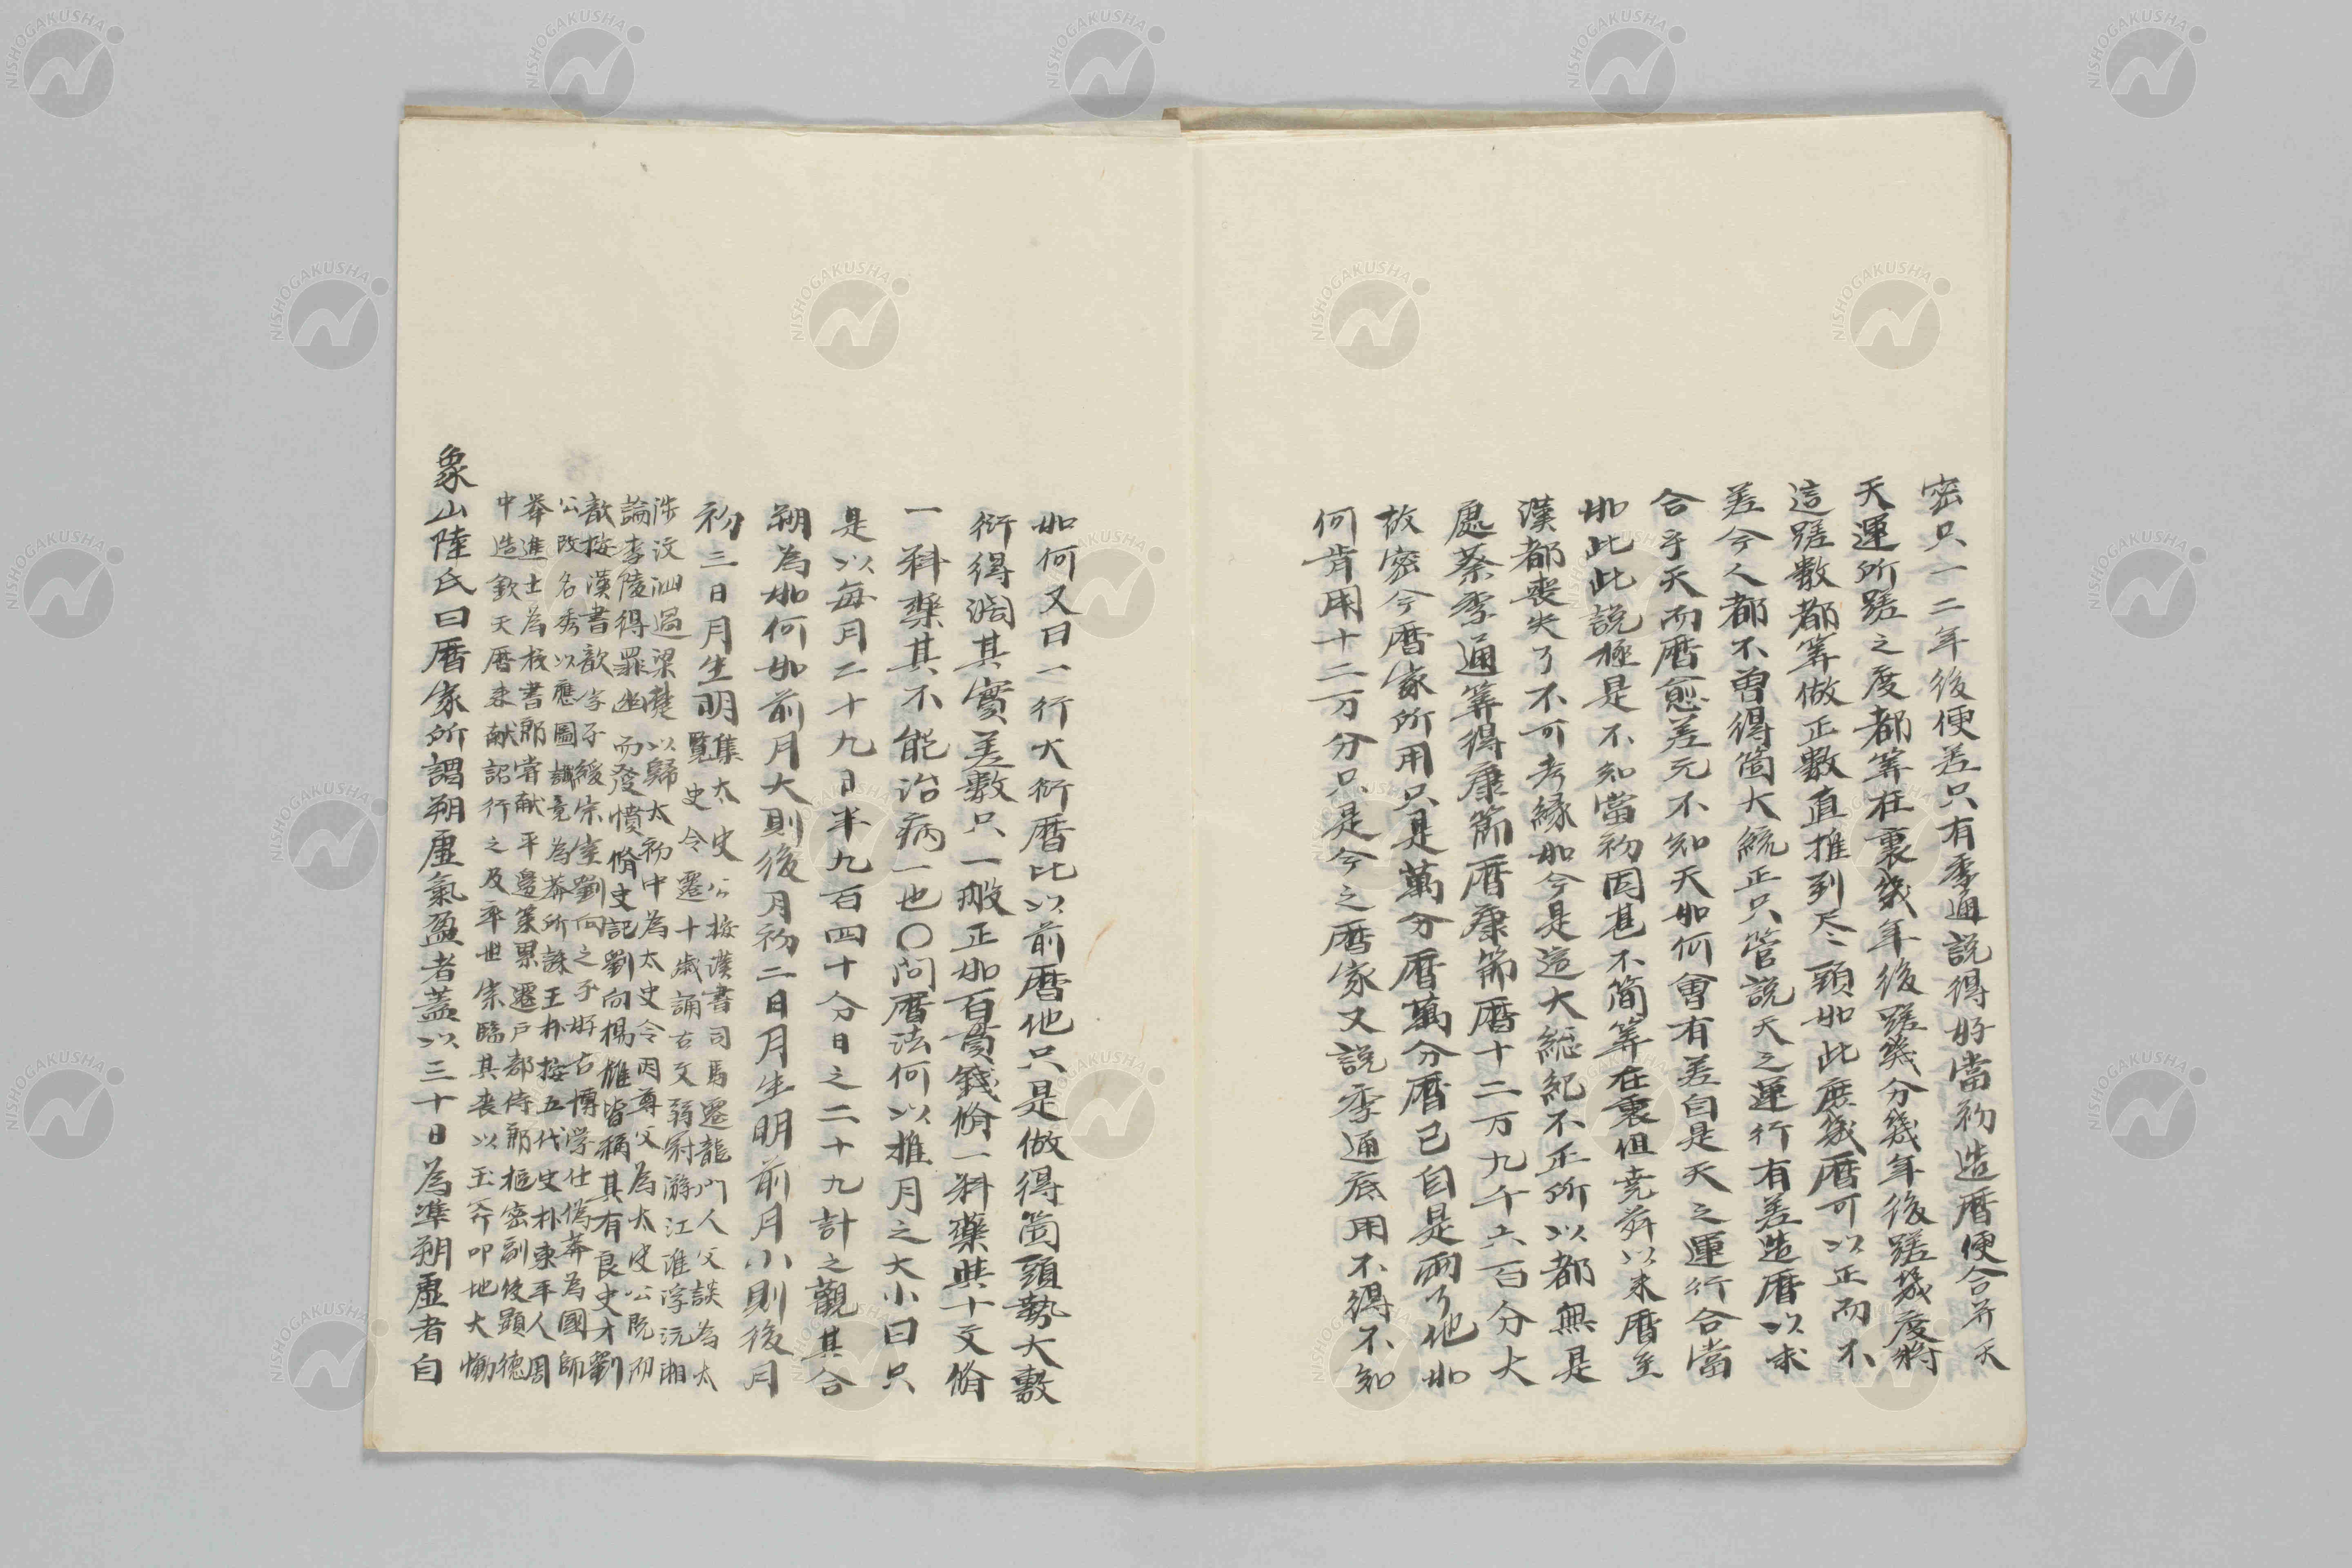 密只一二年後便差只有季通說得好當初造曆便合并天
天運所蹉之度都筭在裏幾年後蹉幾分幾年後蹉幾度將
這蹉數都筭做正數直推到尽頭如此庶幾曆可以正而不
差今人都不曾得箇大統正只管說天之運行有差造曆以求
合乎天而曆愈差元不知天如何會有差自是天之運行合當
如此此說極是不知當初因甚不箇筭在裏但堯舜以来曆至
漢都喪失了不可考緣如今是這大総紀不正所以都無是
處蔡季通筭得康節曆康節曆十二万九千六百分大
故密今曆家所用只是萬分曆萬分曆已自是兩了他如
何肯用十二万分只是今之曆家又説季通底用不得不知
如何又曰一行大衍曆比以前曆他只是做得箇頭勢大敷
衍得濶其實差數只一般正如百貫錢脩一料藥與十文脩
一料藥其不能治病一也〇問曆法何以推月之大小曰只
是以每月二十九日半九百四十分日之二十九計之觀其合
朔為如何如前月大則後月初二日月生明前月小則後月
初三日月生明集覽太史公按漢書司馬遷龍門人父談為太
史令遷十歳誦古文弱冠游江淮浮沅湘
涉汶泗過梁楚以歸太初中為太史令因尊父為太史公既而
論李陵得罪幽而發憤脩史記劉向楊雄皆稱其有良史才劉
歆按漢書歆字子緩宗室劉向之子好古博学仕偽莽為國師
公改名秀以應圖讖竟為莽所誅王朴按五代史朴東平人周
舉進士為校書郎甞献平邉策累遷戸部侍郎樞密副使顕德
中造欽天曆来献詔行之及卒世宗臨其喪以玉斧叩地大慟
象山陸氏曰曆家所謂朔虛氣盈者蓋以三十日為準朔虛者自